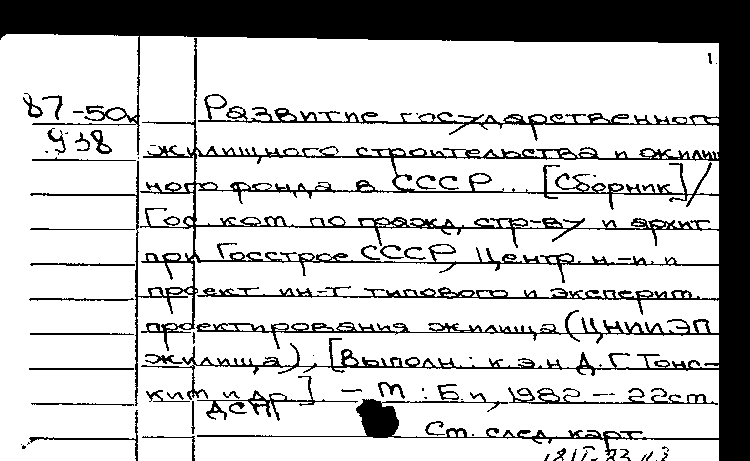 1
87-50к Развитие государственного
938 жилищного строительства и жилищ
ного фонда в СССР.. [Сборник]/
Гос ком. по гражд, стр-ву и архит
при Госстрое СССР, Центр. н.-и. и
проект ин-т типового и эксперит.
проектирования жилища (ЦНИИЭП
жилища); [Выполн.: к.э.н Д.Г. Тонс-
кит и др] - М : Б и, 1982 - 22см.
ДСП
См. след. карт.